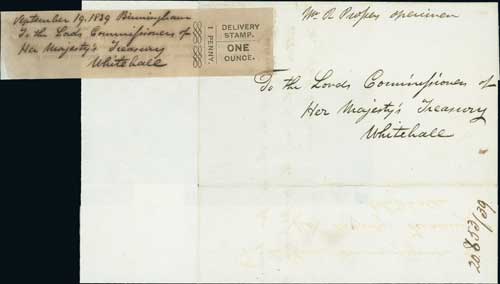 September 19. 1839 Birmingham
To the Lords Commissioners of
Her Majesty's Treasury
Whitehall
1 PENNY.
DELIVERY
STAMP.
ONE
OUNCE.
Mr. R Prosser specimen
To the Lords Commissioners of
Her Majesty's Treasury
Whitehall
20853/39